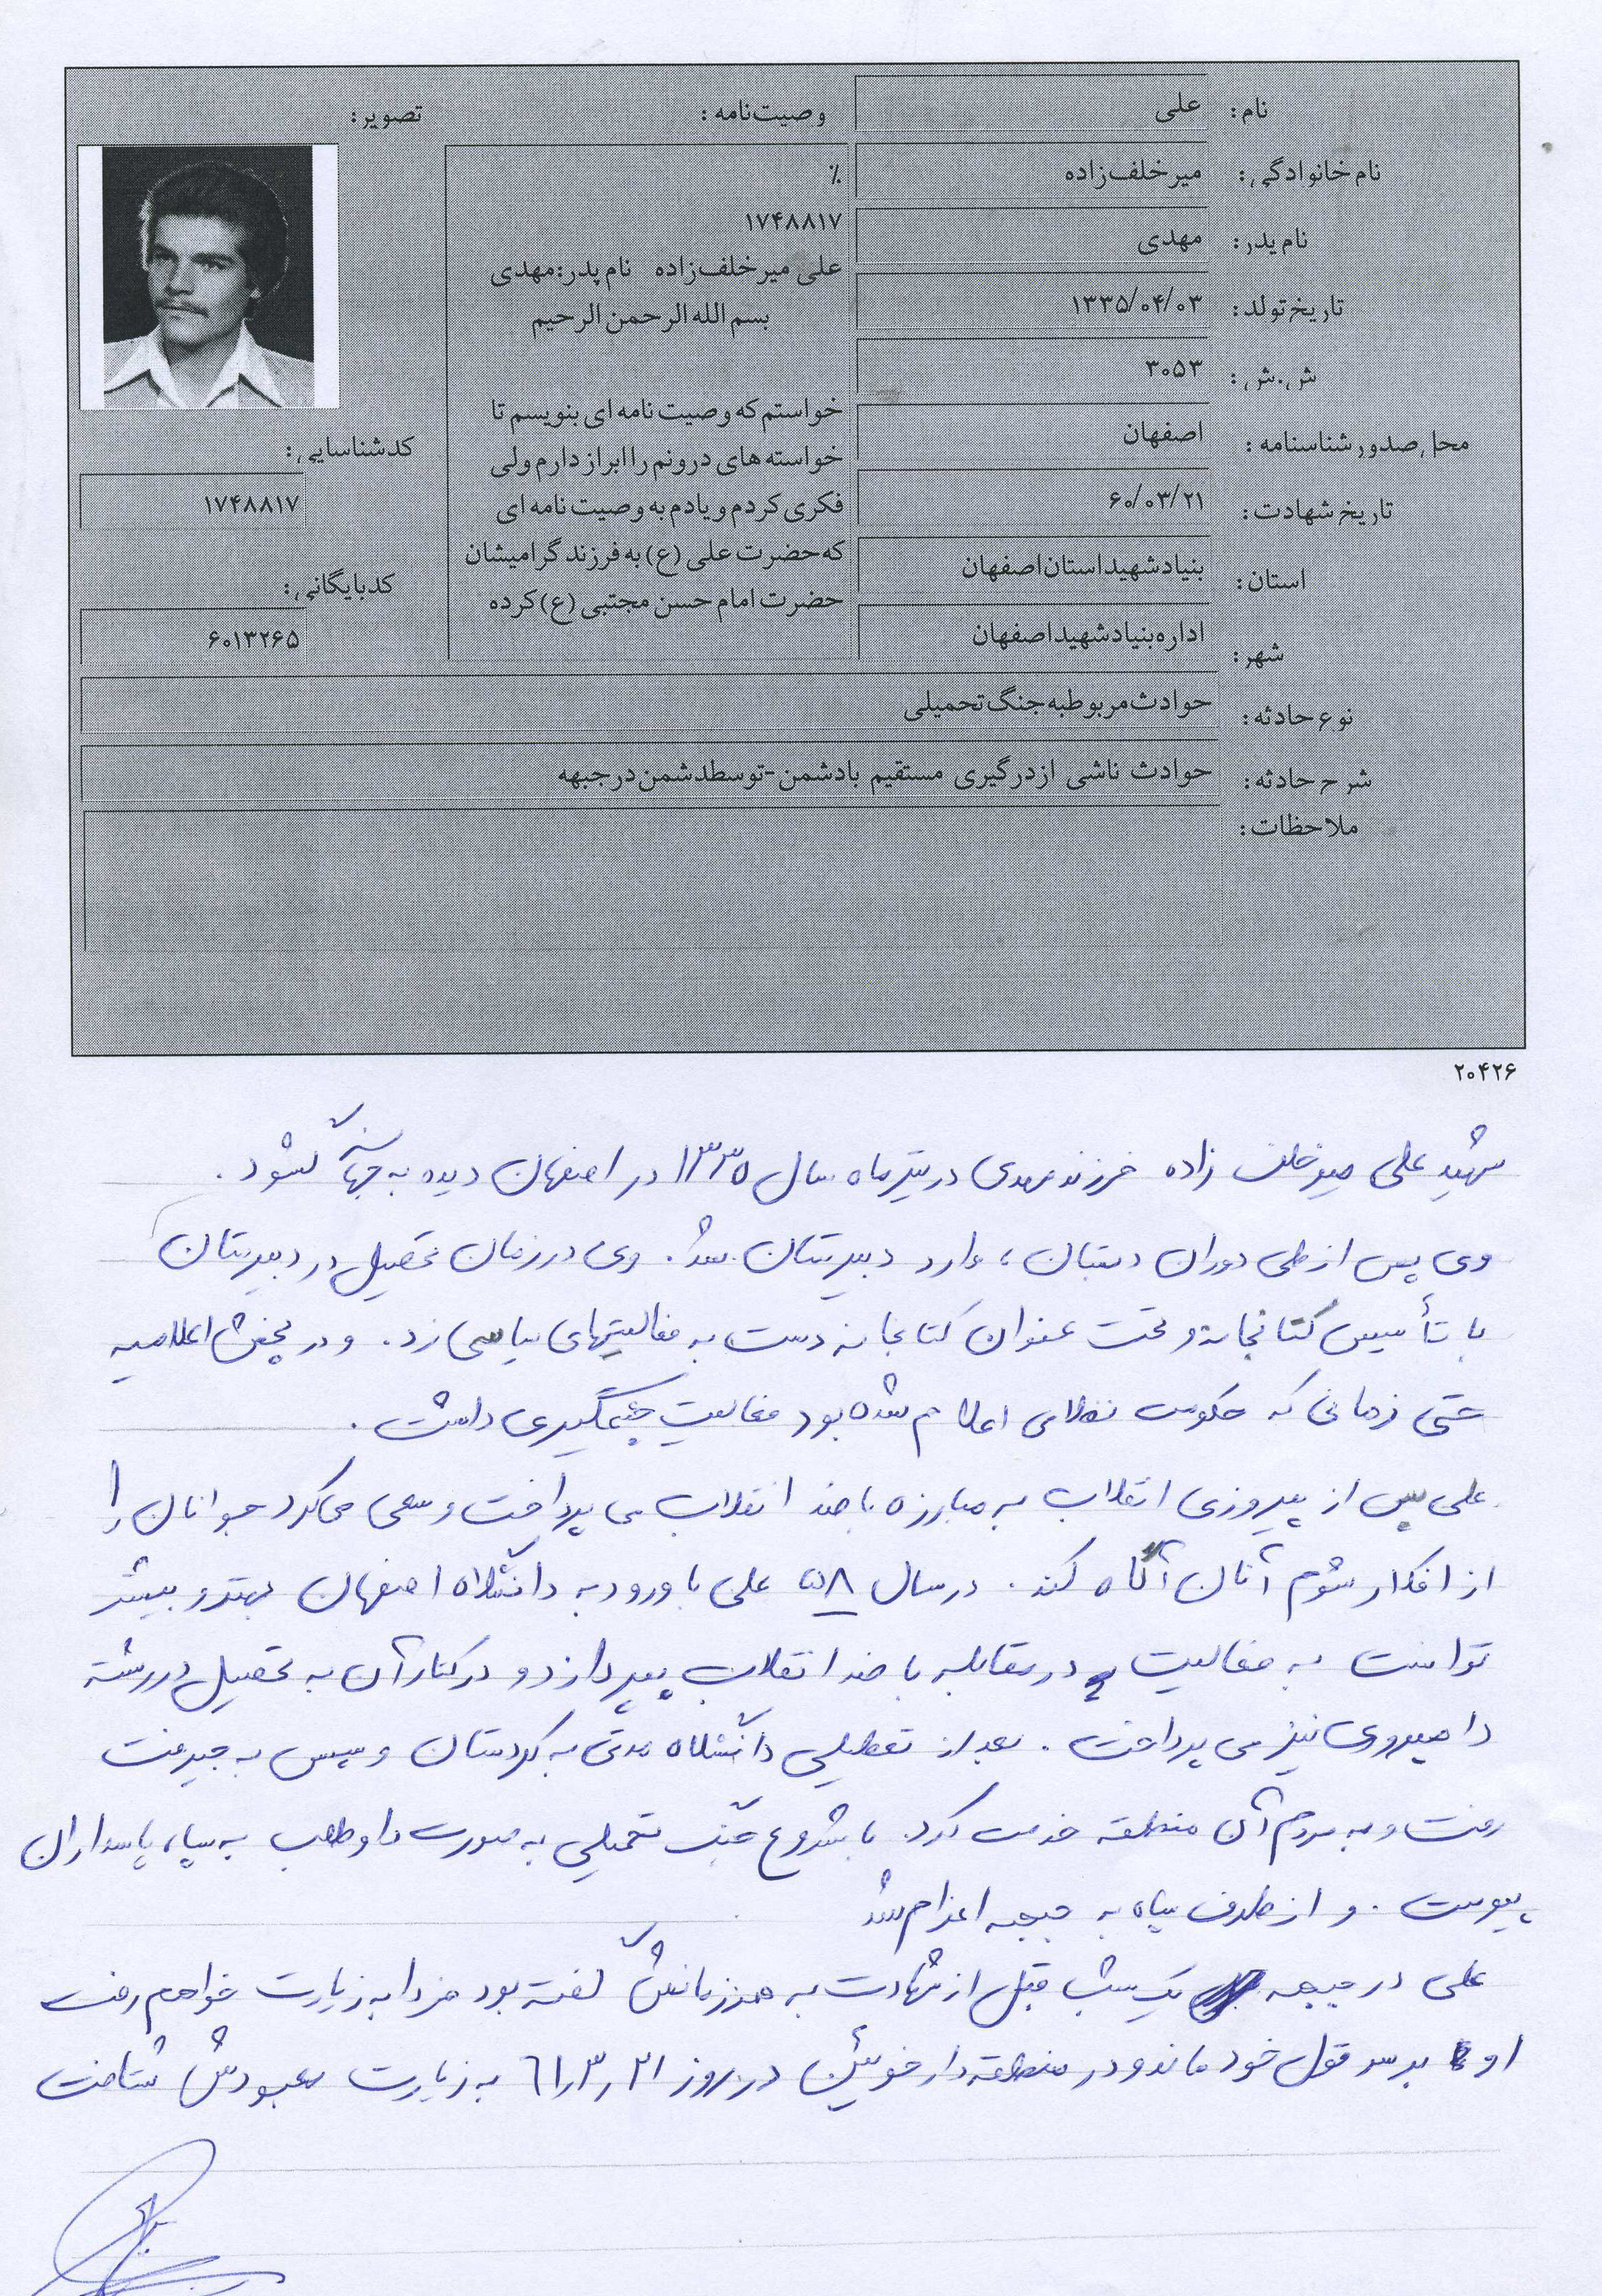 نام: علی
نام خانوادگی: میرخلف‌زاده
نام پدر: مهدی
تاریخ تولد: ۱۳۳۵/۰۴/۰۳
ش.ش: ۳۰۵۳
محل صدور شناسنامه: اصفهان
تاریخ شهادت: ۶۰/۰۳/۲۱
استان: بنیاد شهید استان اصفهان
شهر: اداره بنیاد شهید اصفهان
نوع حادثه: حوادث مربوط به جنگ تحمیلی
شرح حادثه: حوادث ناشی از درگیری مستقیم بادشمن-توسط دشمن در جبهه
ملاحظات:
وصیت‌نامه:
٪
۱۷۴۸۸۱۷
علی میرخلف‌زاده نام پدر:مهدی
بسم الله الرحمن الرحیم
خواستم که وصیت نامه ای بنویسم تا
خواسته های درونم را ابراز دارم ولی
فکری کردم و یادم به وصیت نامه ای
که حضرت علی (ع) به فرزند گرامیشان
حضرت امام حسن مجتبی (ع) کرده
تصویر:
کد شناسایی:
۱۷۴۸۸۱۷
کد بایگانی:
۶۰۱۳۲۶۵
۲۰۴۲۶
شهید علی میرخلف زاده فرزند مهدی در تیرماه سال ۱۳۳۵ در اصفهان دیده به جهان گشود.
وی پس از طی دوران دبستان، وارد دبیرستان شد. وی در زمان تحصیل در دبیرستان
با تأسیس کتابخانه و تحت عنوان کتابخانه دست به فعالیتهای سیاسی زد. و در پخش اعلامیه
حتی زمانی که حکومت نظامی اعلام شده بود فعالیت چشمگیری داشت.
علی پس از پیروزی انقلاب به مبارزه با ضد انقلاب می پرداخت و سعی می کرد جوانان را
از افکار شوم آنان آگاه کند. در سال ۵۸ علی با ورود به دانشگاه اصفهان بهتر و بیشتر
توانست به فعالیت در مقابله با ضد انقلاب بپردازد و در کنار آن به تحصیل در رشته
دامپروری نیز می پرداخت. بعد از تعطیلی دانشگاه مدتی به کردستان و سپس به جیرفت
رفت و به مردم آن منطقه خدمت کرد. با شروع جنگ تحمیلی به صورت داوطلب به سپاه پاسداران
پیوست. و از طرف سپاه به جبهه اعزام شد
علی در جبهه یک شب قبل از شهادت به همرزمانش گفته بود فردا به زیارت خواهم رفت
او بر سر قول خود ماند و در منطقه دارخوئین در روز ۶۱٫۳٫۲۱ به زیارت معبودش شتافت